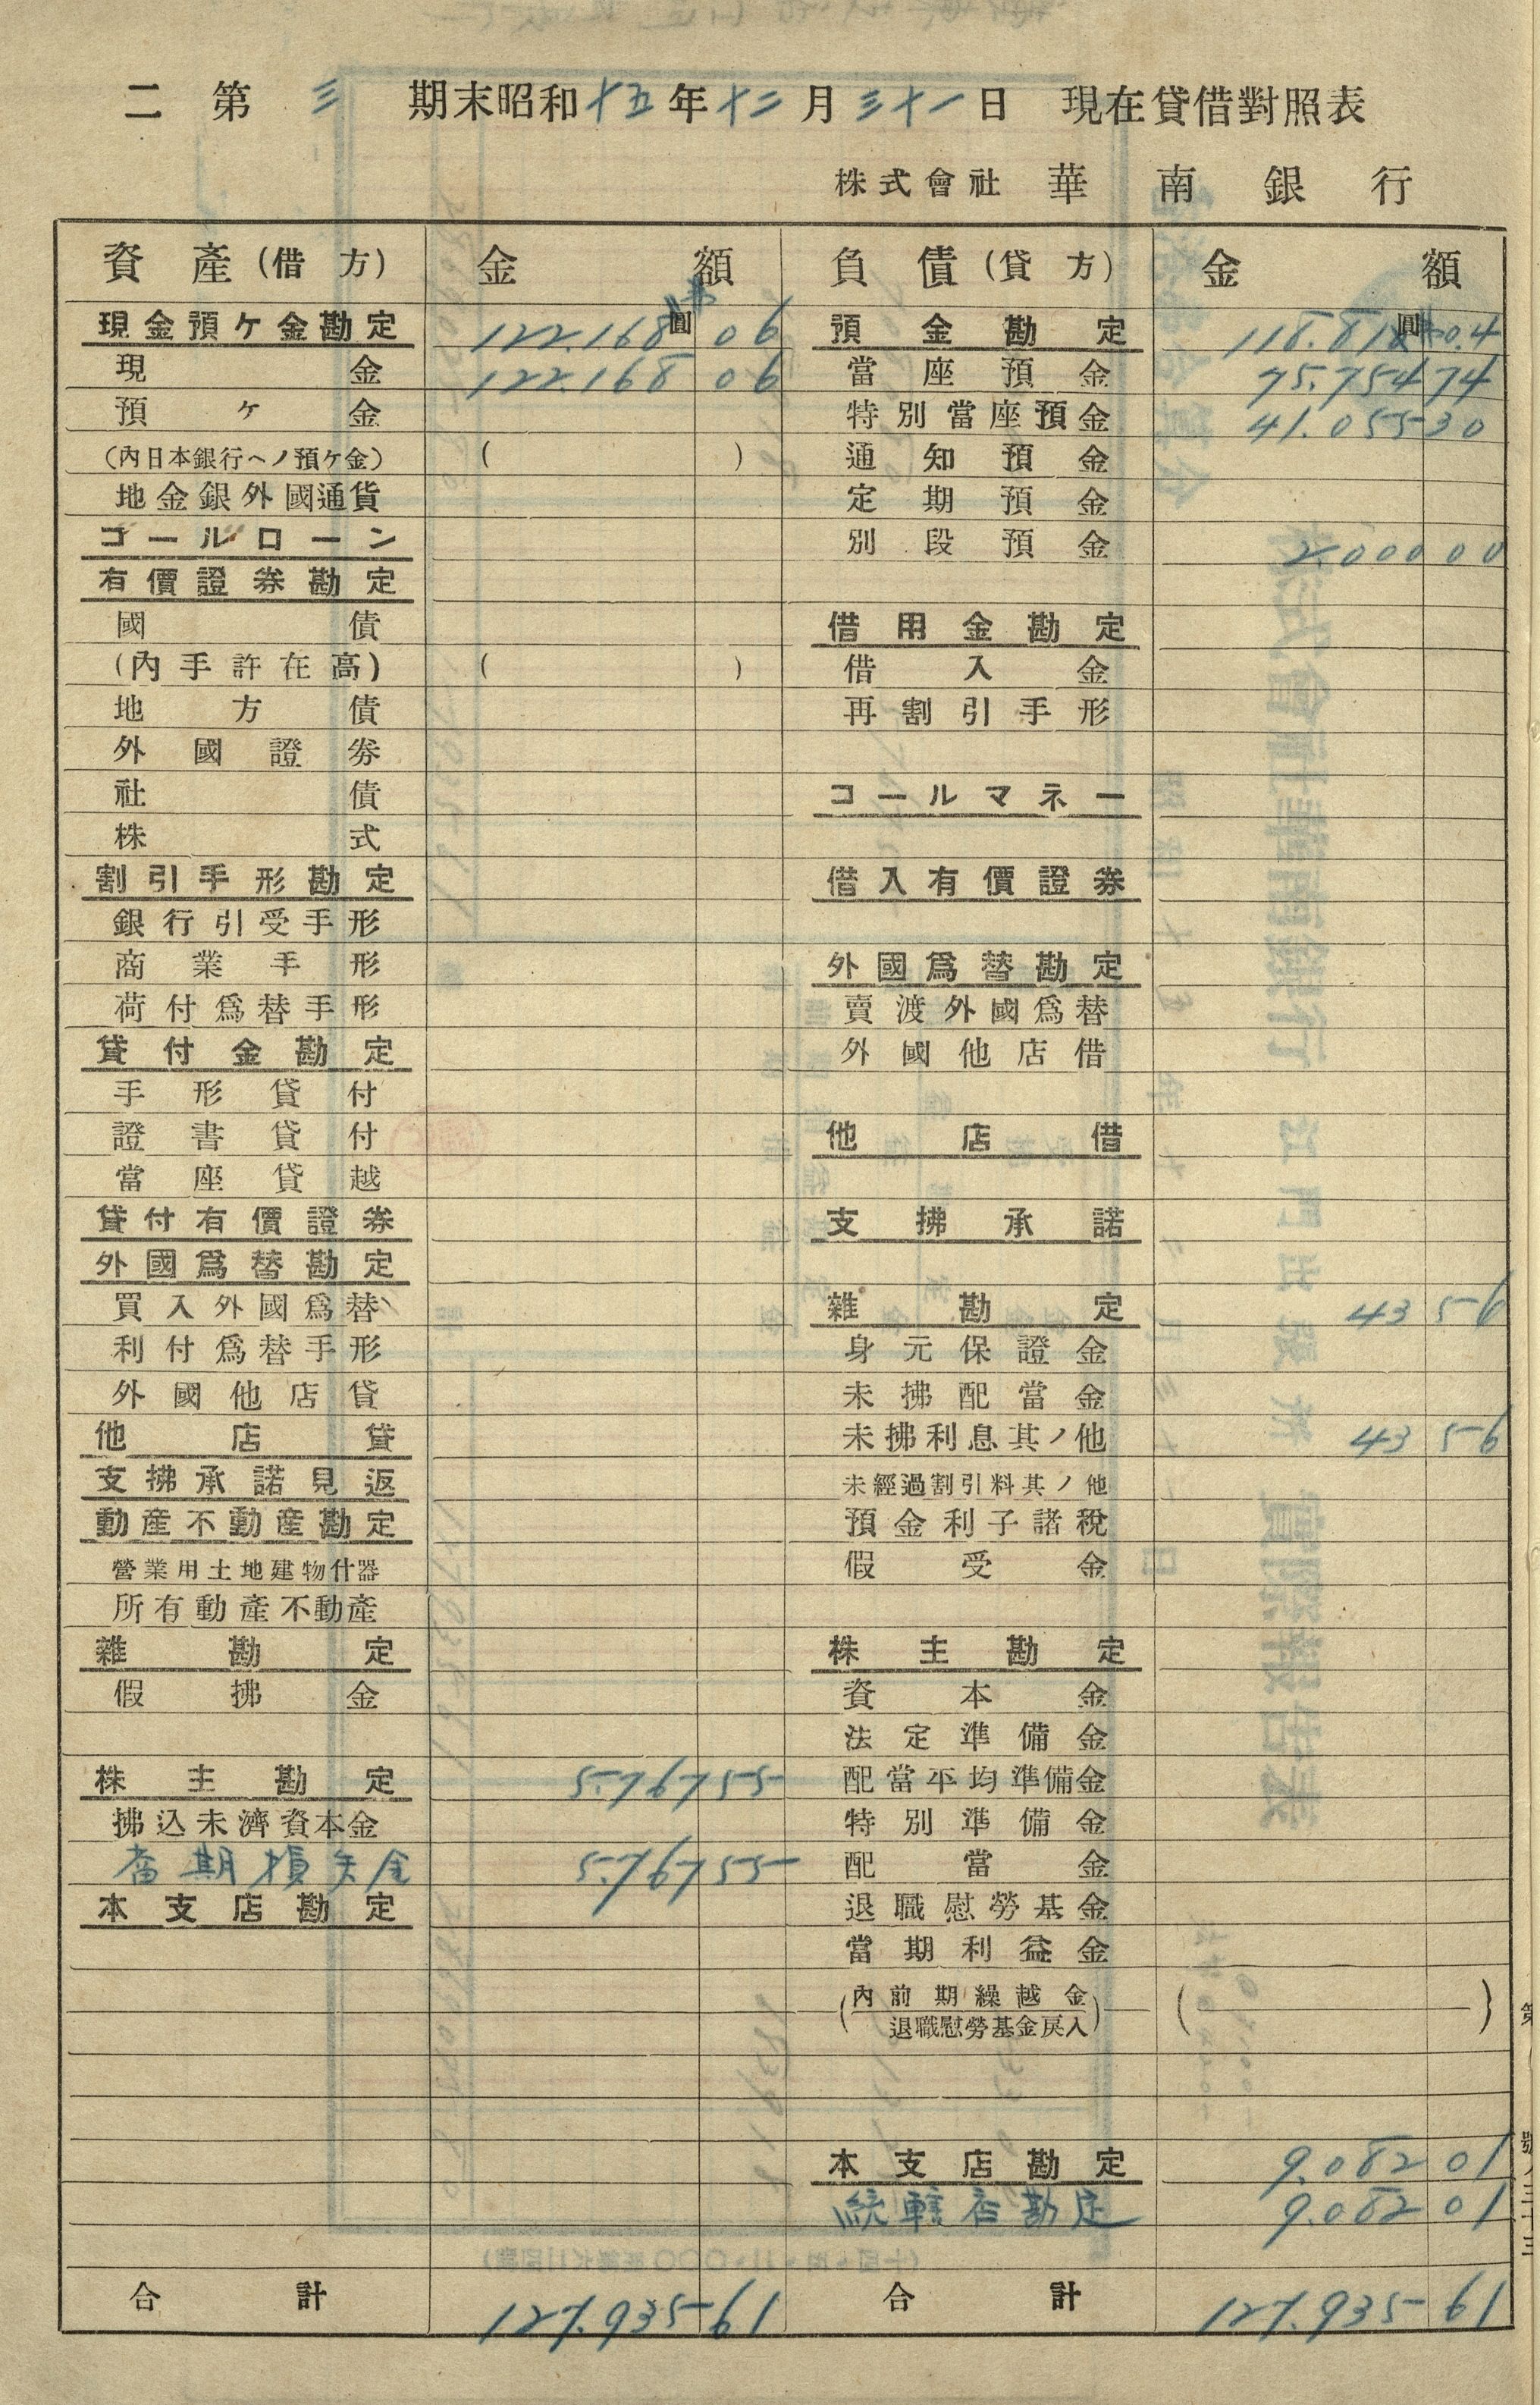 二 第 三 期末昭和十五年十二月三十一日 現在貸借對照表
株式會社 華南銀行
資產(借方) 金額 負債(貸方) 金額
現金預ケ金勘定 122.168 06 預金勘定 118.810 04
現金 122.168 06 當座預金 75.754 74
預ケ金 特別當座預金 41.055 30
(內日本銀行ヘノ預ケ金) ( ) 通知預金
地金銀外國通貨 定期預金
コールローン 別段預金 2.000 00
有價證券勘定
國債 借用金勘定
(內手許在高) ( ) 借入金
地方債 再割引手形
外國證券
社債 コールマネー
株式
割引手形勘定 借入有價證券
銀行引受手形
商業手形 外國爲替勘定
荷付爲替手形 賣渡外國爲替
貸付金勘定 外國他店借
手形貸付
證書貸付 他店借
當座貸越
貸付有價證券 支拂承諾
外國爲替勘定
買入外國爲替 雜勘定 43 56
利付爲替手形 身元保證金
外國他店貸 未拂配當金
他店貸 未拂利息其ノ他 43 56
支拂承諾見返 未經過割引料其ノ他
動產不動產勘定 預金利子諸稅
營業用土地建物什器 假受金
所有動產不動產
雜勘定 株主勘定
假拂金 資本金
法定準備金
株主勘定 5.767 55 配當平均準備金
拂込未濟資本金 特別準備金
當期損失金 5.767 55 配當金
本支店勘定 退職慰勞基金
當期利益金
(內前期繰越金
退職慰勞基金戾入) ( )
本支店勘定 9.082 01
統轄店勘定 9.082 01
合計 127.935 61 合計 127.935 61